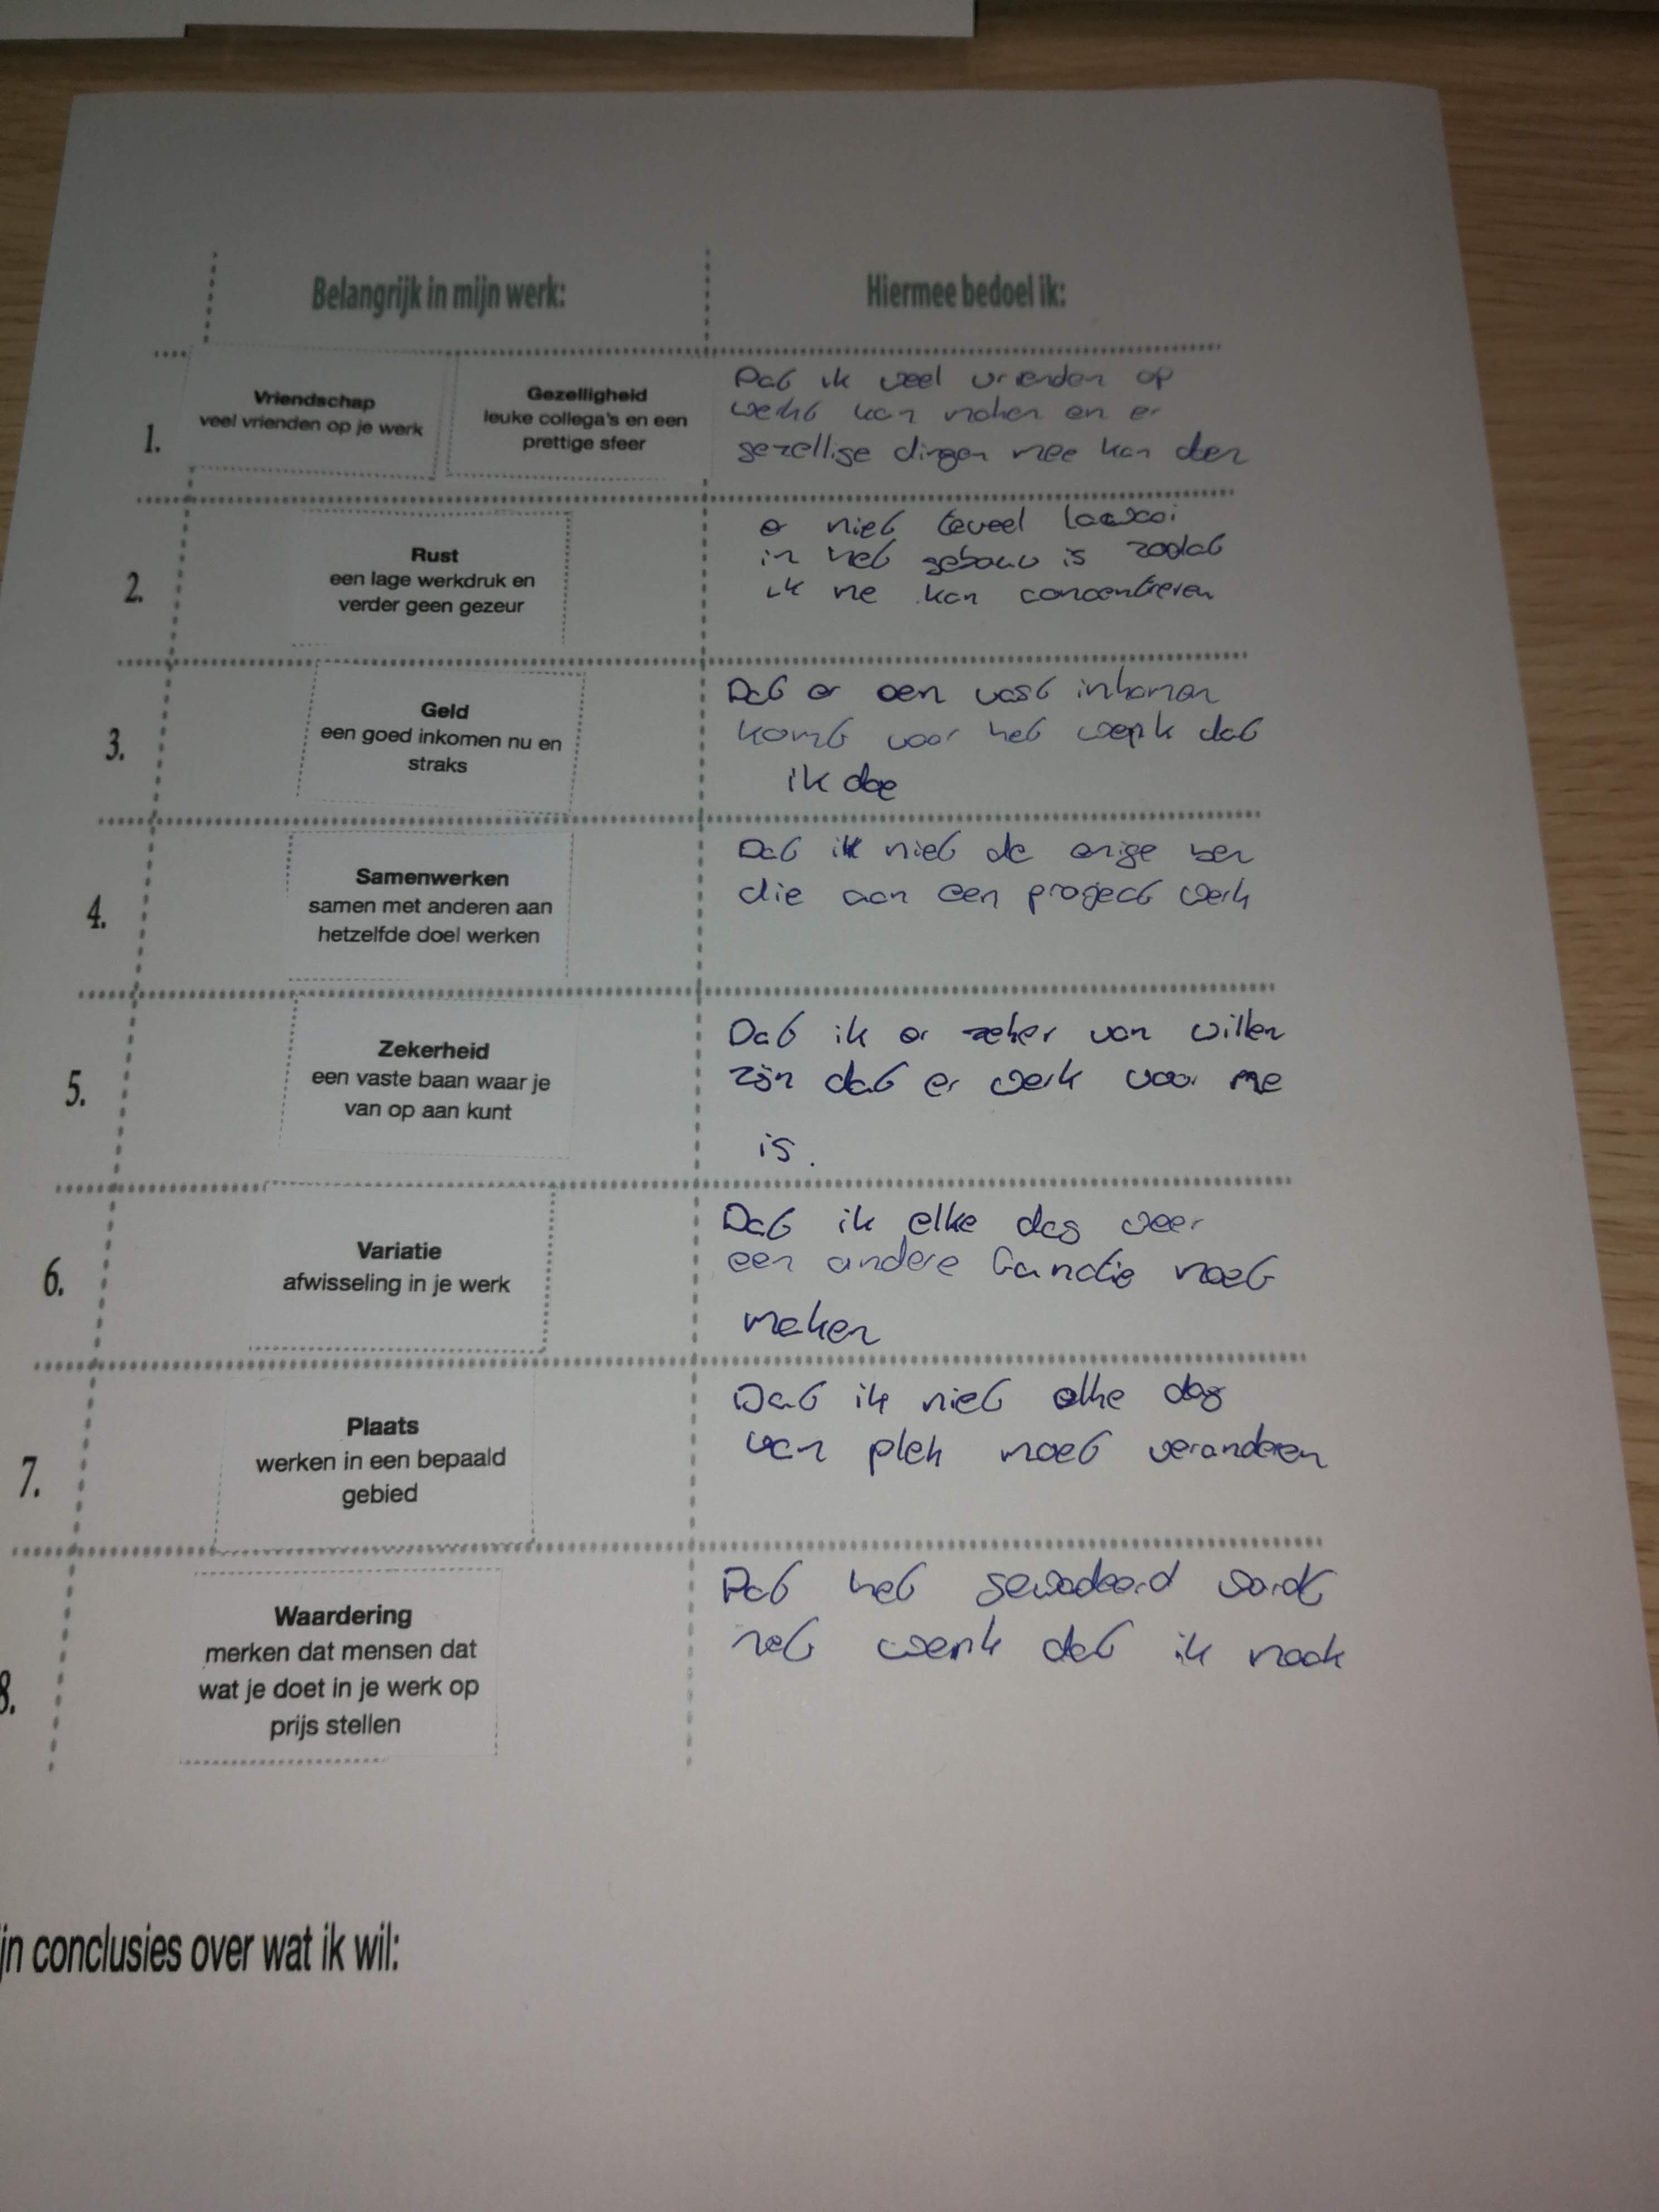 Belangrijk in mijn werk:
Hiermee bedoel ik:
1.
Vriendschap
veel vrienden op je werk
Gezelligheid
leuke collega's en een
prettige sfeer
Dat ik veel vrienden op
werkt kan maken en er
gezellige dingen mee kan doen
2.
Rust
een lage werkdruk en
verder geen gezeur
er niet teveel lawaai
in het gebouw is zodat
ik me kan concentreren
3.
Geld
een goed inkomen nu en
straks
Dat er een vast inkomen
komt voor het werk dat
ik doe
4.
Samenwerken
samen met anderen aan
hetzelfde doel werken
Dat ik niet de enige ben
die aan een project werk
5.
Zekerheid
een vaste baan waar je
van op aan kunt
Dat ik er zeker van willen
zijn dat er werk voor me
is.
6.
Variatie
afwisseling in je werk
Dat ik elke dag weer
een andere moet
maken
7.
Plaats
werken in een bepaald
gebied
Dat ik niet elke dag
van plek moet veranderen
8.
Waardering
merken dat mensen dat
wat je doet in je werk op
prijs stellen
Dat het wordt
het werk dat ik maak
jn conclusies over wat ik wil: